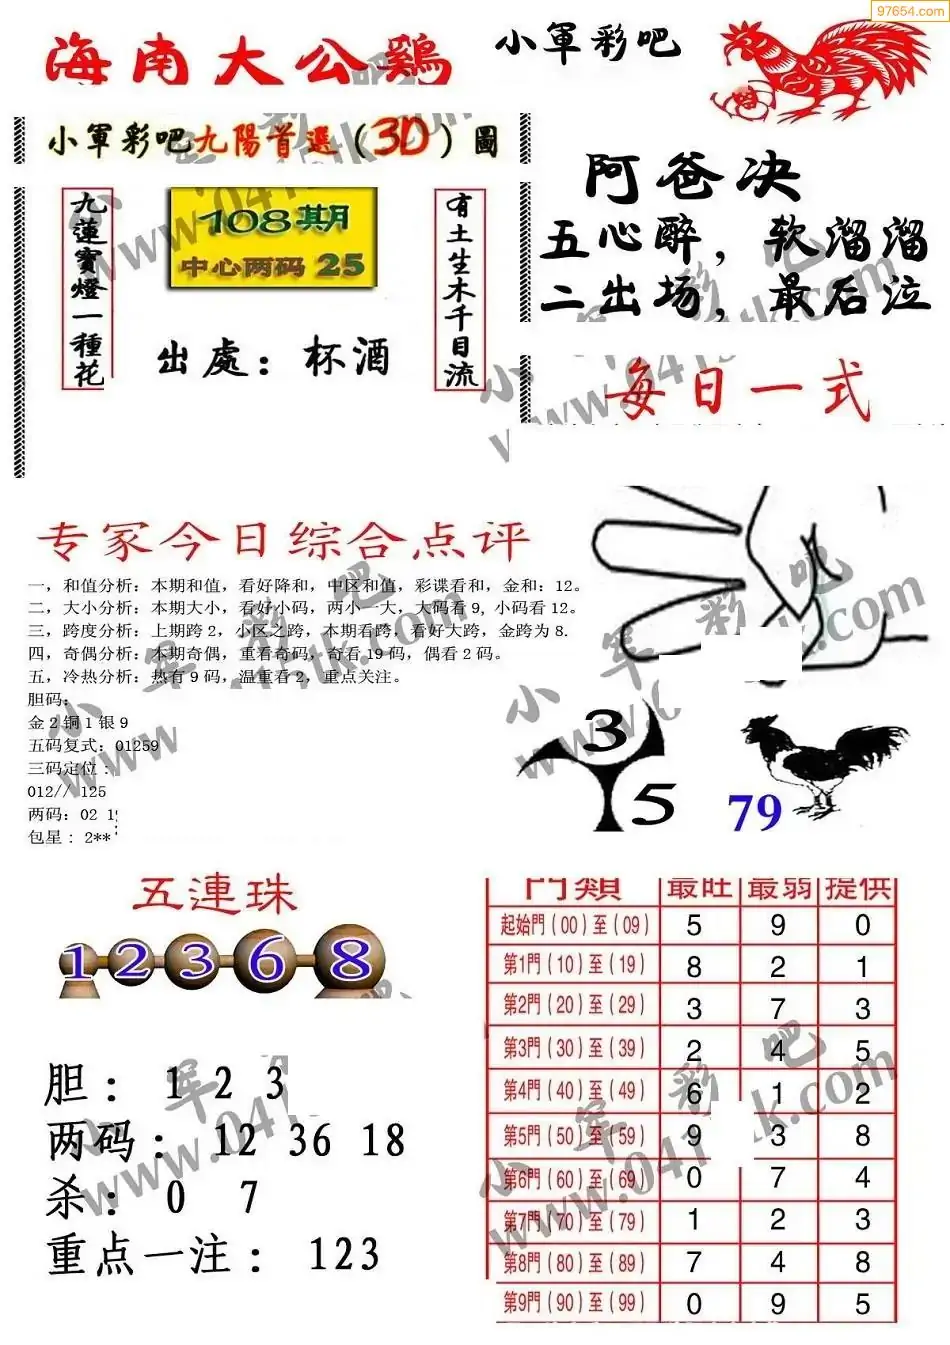 97654.com
海南大公鷄
小軍彩吧
小軍彩吧九陽首選(3D)圖
九蓮寶燈一種花
108期
中心两码 25
出處：杯酒
有土生木千目流
阿爸决
五心醉，软溜溜
二出场，最后泣
每日一式
专家今日综合点评
一，和值分析：本期和值，看好降和，中区和值，彩谍看和，金和：12。
二，大小分析：本期大小，看好小码，两小一大，大码看9, 小码看12。
三，跨度分析：上期跨2，小区之跨，本期看跨，看好大跨，金跨为8.
四，奇偶分析：本期奇偶，重看奇码，奇看19码，偶看2码。
五，冷热分析：热有9码，温重看2，重点关注。
胆码：
金2铜1银9
五码复式：01259
三码定位：
012// 125
两码：02
包星：2**
3
5
79
五連珠
1 2 3 6 8
胆： 1 2 3
两码： 12 36 18
杀： 0 7
重点一注： 123
門類 最旺 最弱 提供
起始門(00)至(09) 5 9 0
第1門(10)至(19) 8 2 1
第2門(20)至(29) 3 7 3
第3門(30)至(39) 2 4 5
第4門(40)至(49) 6 1 2
第5門(50)至(59) 9 3 8
第6門(60)至(69) 0 7 4
第7門(70)至(79) 1 2 3
第8門(80)至(89) 7 4 8
第9門(90)至(99) 0 9 5